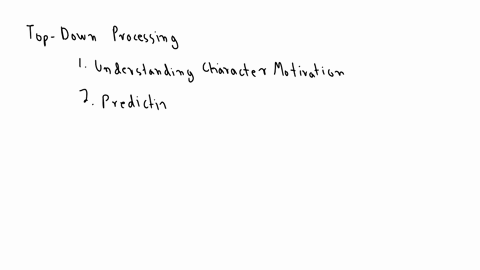 Top-Down Processing
1. Understanding Character Motivation
2. Predictin